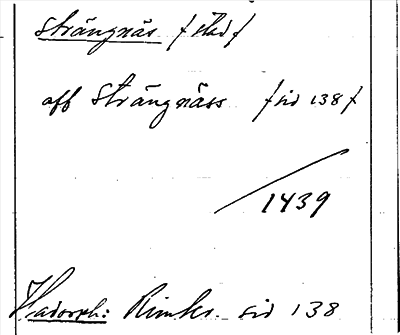 Strängnäs /stad/
aff Strängnäss /sid 138/
1439
Hadorph: Rimkr. sid 138